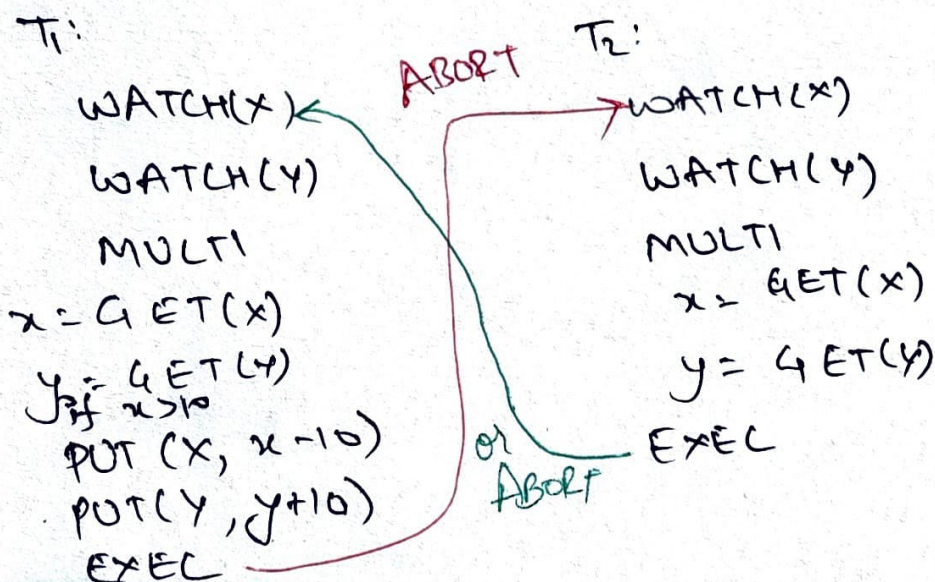 T1:
WATCH(X)
WATCH(Y)
MULTI
x = GET(X)
y = GET(Y)
if x>10
PUT (X, x-10)
PUT(Y, y+10)
EXEC
ABORT
or
ABORT
T2:
WATCH(X)
WATCH(Y)
MULTI
x = GET(X)
y = GET(Y)
EXEC